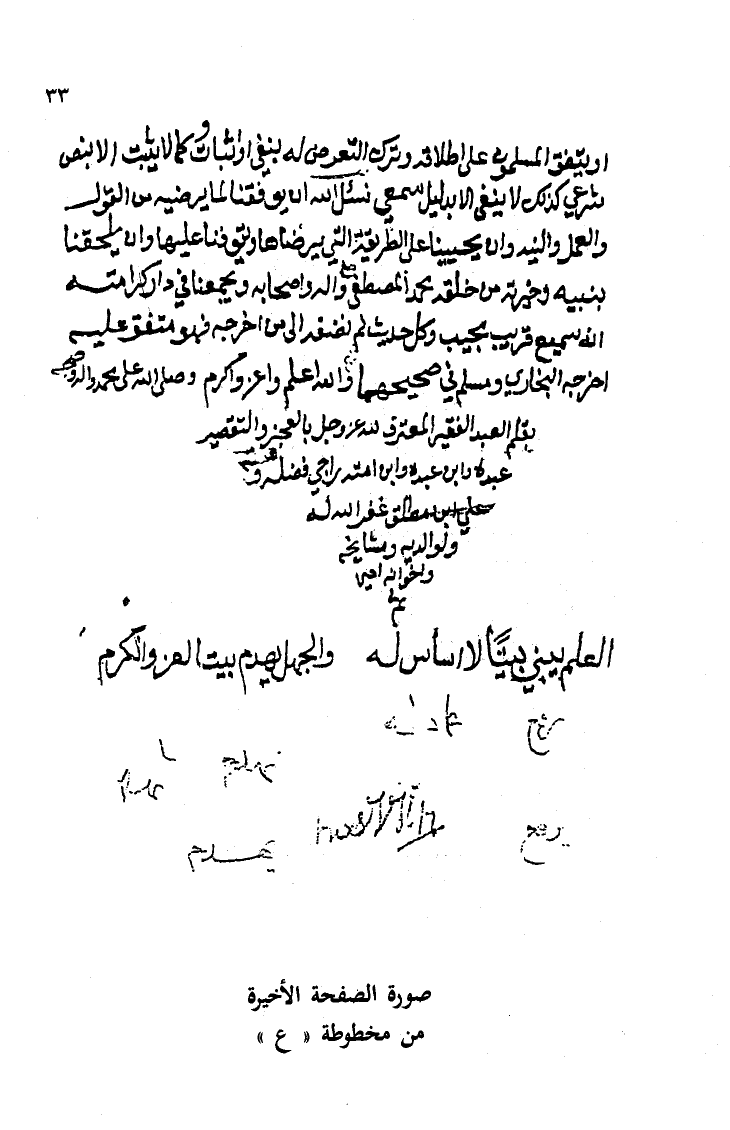 ٣٣
او يتفق المسلمون على اطلاقه وترك التعرض له بنفي او اثبات وكما لا يثبت الا بنص
شرعي كذلك لا ينفى الا بدليل سمعي نسئل الله ان يوفقنا لما يرضيه من القول
والعمل والنيه وان يحيينا على الطريقة التي يرضاها ويتوفنا عليها وان يلحقنا
بنبيه وخيرته من خلقه محمد المصطفى واله واصحابه ويجمعنا في دار كرامته
انه سميع قريب مجيب وكل حديث لم نضفه الى من اخرجه فهو متفق عليه
اخرجه البخاري ومسلم في صحيحهما والله اعلم واعز واكرم وصلى الله على محمد واله وصحبه
بقلم العبد الفقير المعترف لله عز وجل بالعجز والتقصير
عبده وابن عبده وابن امته راجي فضله
علي ابن مطلق غفر الله له
ولوالديه ومشايخه
واخوانه امين
تم
العلم يبني بيتًا لا اساس له والجهل يهدم بيت العز والكرم
صورة الصفحة الأخيرة
من مخطوطة « ع »